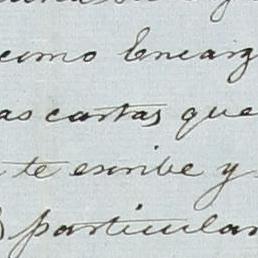 como Encarg
as cartas que
te escribe y
particular